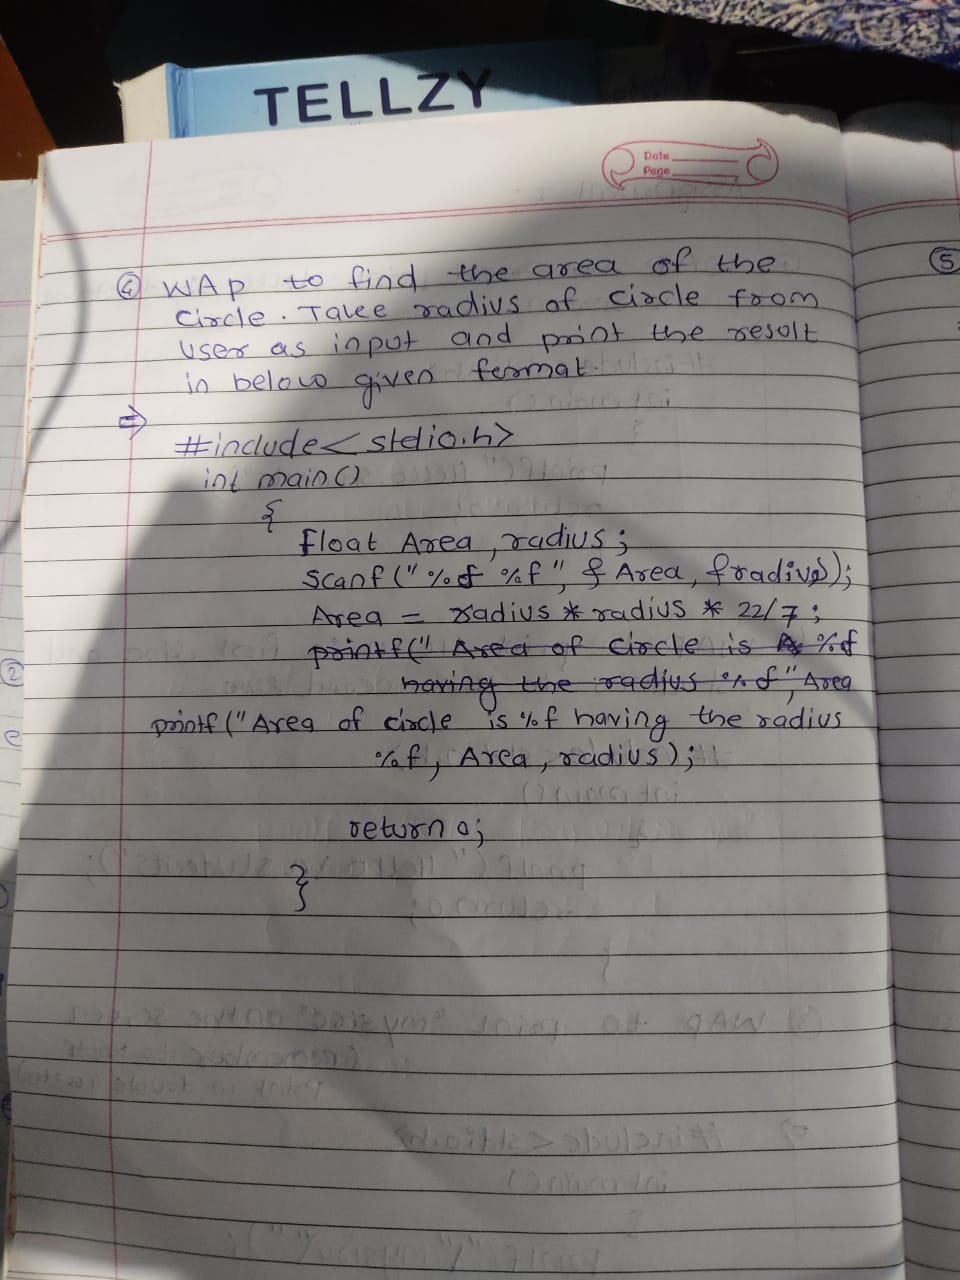 TELLZY
Date
Page
④ WAP to find the area of the
circle. Take radius of circle from
user as input and print the result
in below given format.
⇒
#include<stdio.h>
int main()
{
float Area, radius;
scanf("%f %f", &Area, &radius);
Area = radius * radius * 22/7;
printf(" Area of circle is %f
having the radius %f", Area
printf("Area of circle is %f having the radius
%f, Area, radius);
return 0;
}
⑤
②
e